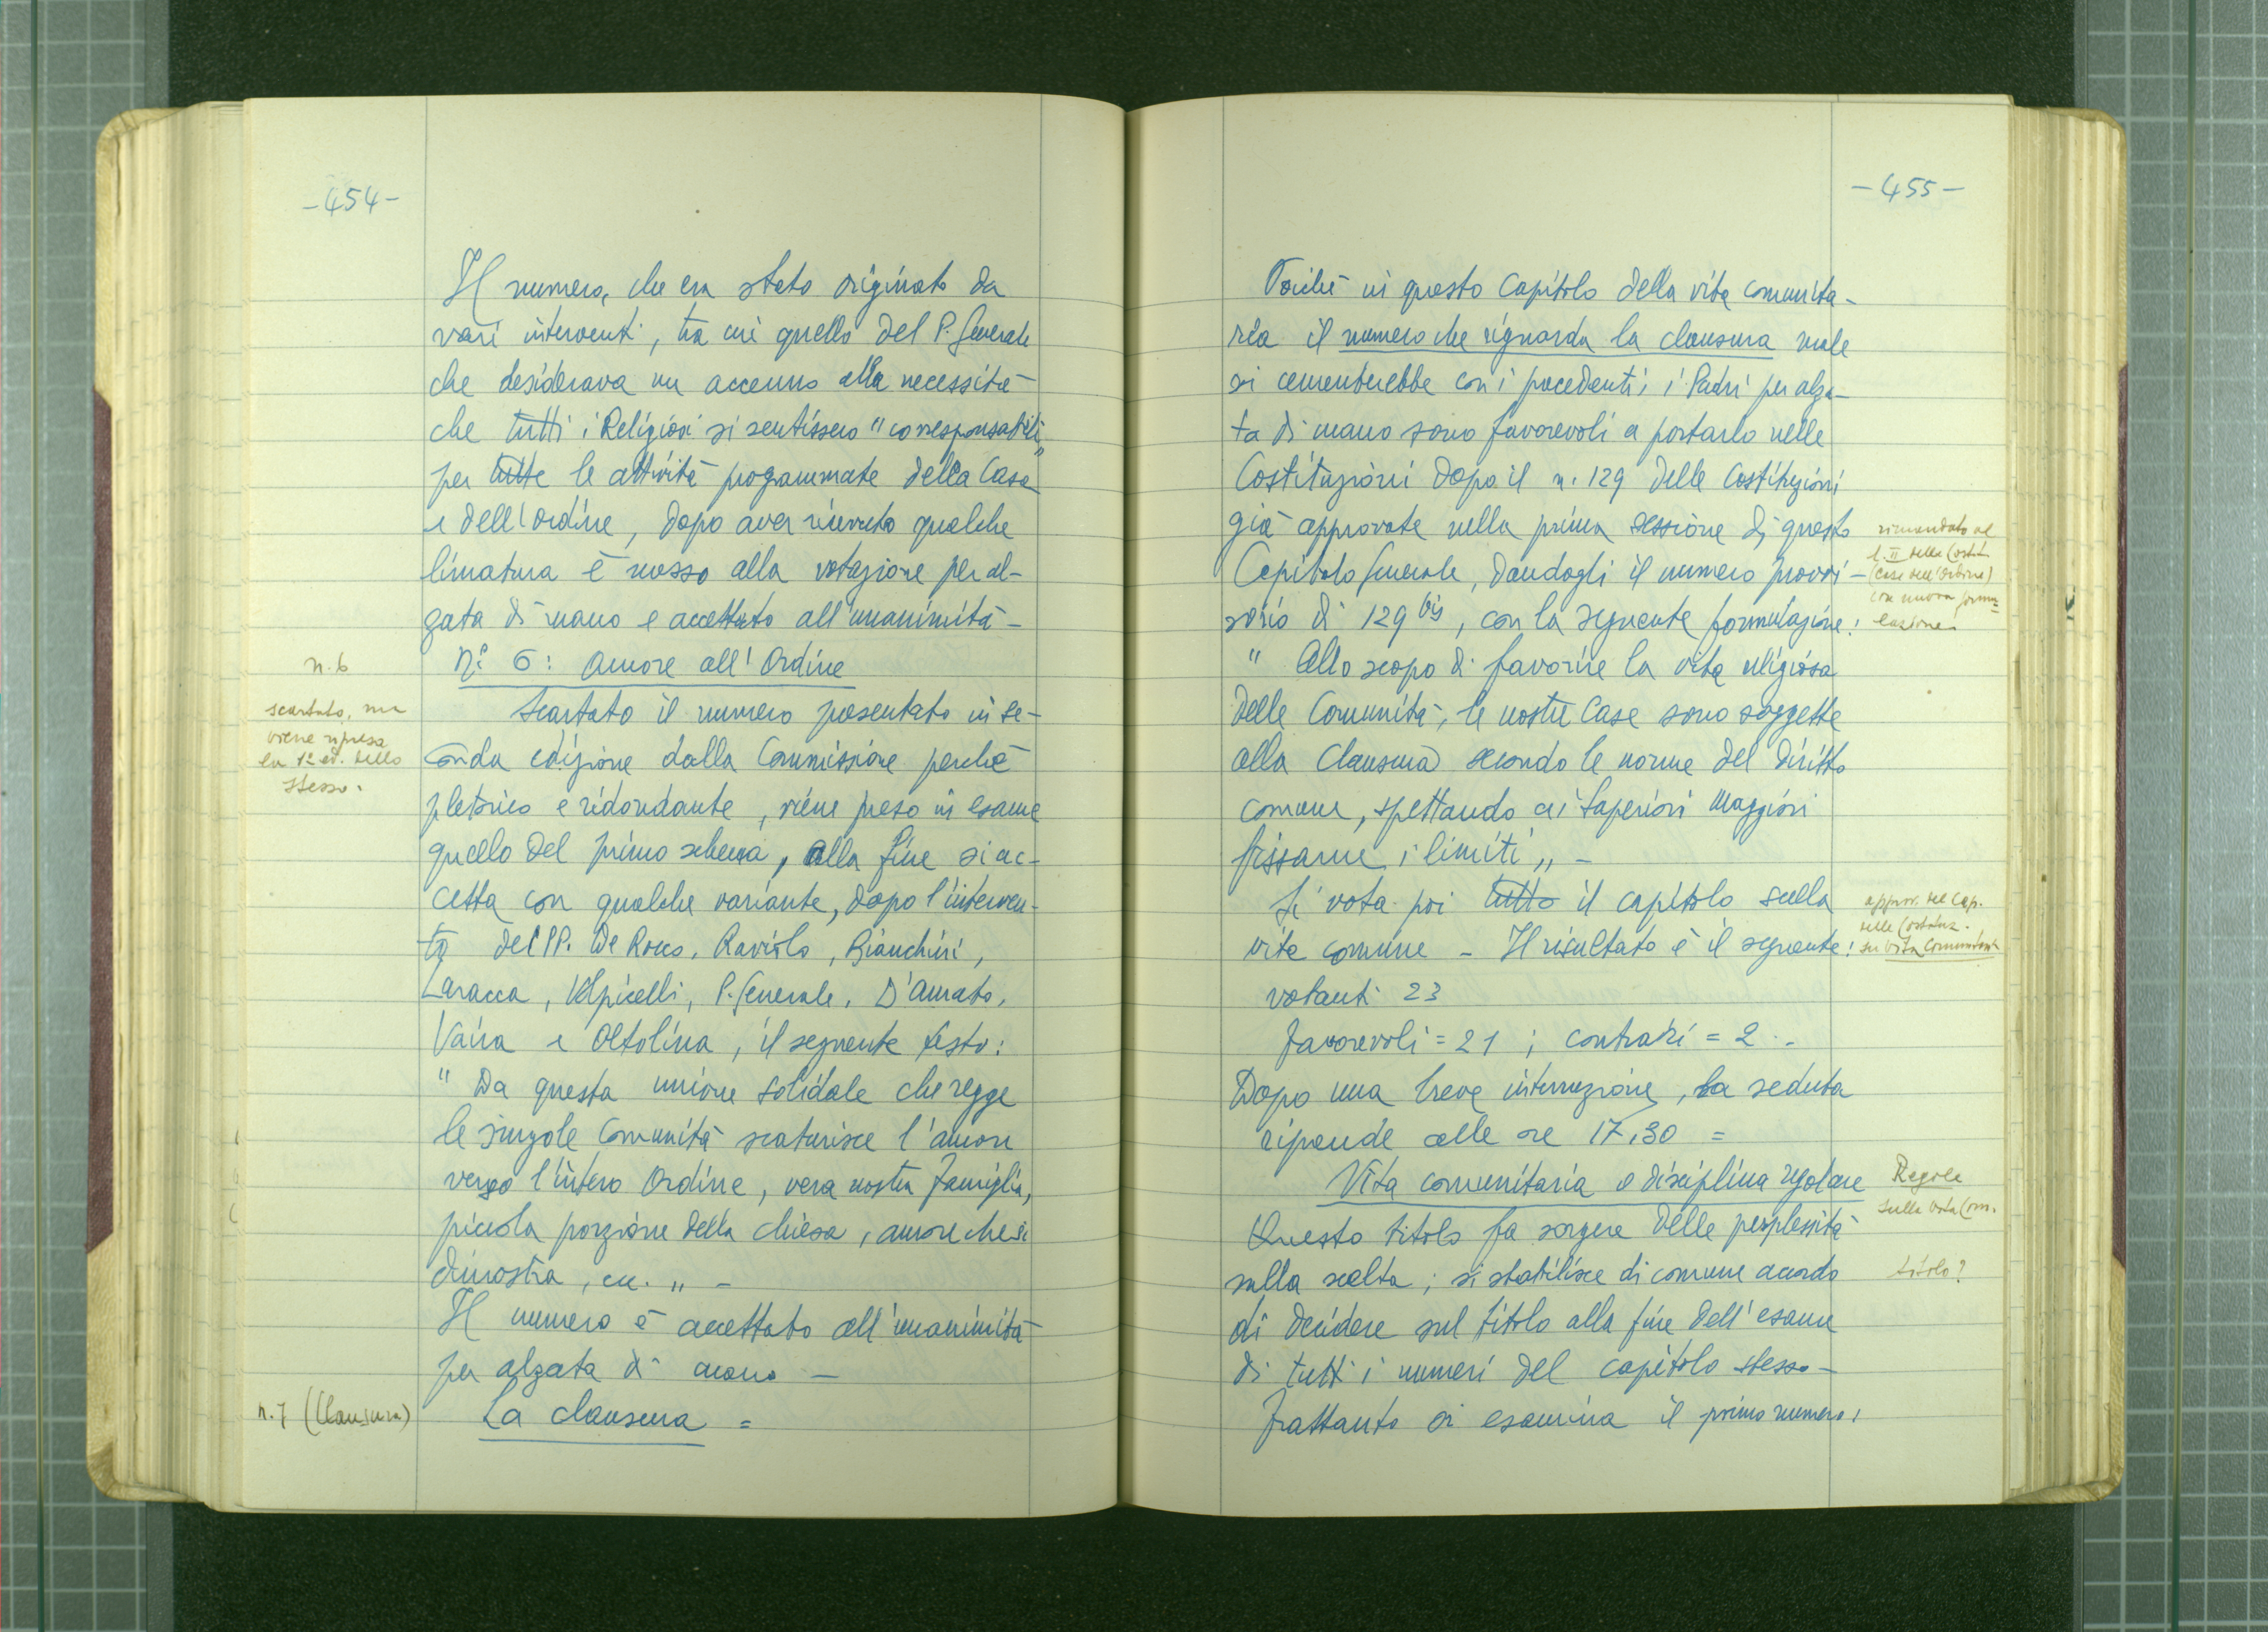 -454-
Il numero, che era stato originato da
vari interventi, tra cui quello del P. Generale
che desiderava un accenno alla necessità
che tutti i Religiosi si sentissero "corresponsabili"
per tutte le attività programmate della Casa
e dell'Ordine, dopo aver ricevuto qualche
limatura è messo alla votazione per al-
zata di mano e accettato all'unanimità -
n. 6
N.° 6: Amore all'Ordine
scartato, ma
viene ripresa
la 1ª ed. dello
stesso.
Scartato il numero presentato in se-
conda edizione dalla Commissione perchè
pletorico e ridondante, viene preso in esame
quello del primo schema, alla fine si ac-
cetta con qualche variante, dopo l'interven-
to dei PP. De Rocco, Raviolo, Bianchini,
Laracca, Volpicelli, P. Generale, D'Amato,
Vaira e Oltolina, il seguente testo:
"Da questa unione solidale che regge
le singole Comunità scaturisce l'amore
verso l'intero Ordine, vera nostra Famiglia,
piccola porzione della chiesa, amore che si
dimostra, ecc. „ -
Il numero è accettato all'unanimità
per alzata di mano -
n. 7 (Clausura)
La clausura =
-455-
Poichè in questo Capitolo della vita comunita-
ria il numero che riguarda la clausura male
si cementerebbe con i precedenti i Padri per alza-
ta di mano sono favorevoli a portarlo nelle
Costituzioni dopo il n. 129 delle Costituzioni
già approvate nella prima sessione di questo
Capitolo Generale, dandogli il numero provvi-
sorio di 129 bis, con la seguente formulazione:
rimandato al
l. II delle Costit.
(Case dell'Ordine)
con nuova formu=
lazione
" Allo scopo di favorire la vita religiosa
delle Comunità, le nostre Case sono soggette
alla Clausura secondo le norme del diritto
comune, spettando ai Superiori Maggiori
fissarne i limiti „ -
Si vota poi tutto il capitolo sulla
vita comune - Il risultato è il seguente:
approv. del Cap.
delle Costituz.
su Vita Comunitaria
votanti 23
favorevoli = 21 ; contrari = 2 . -
Dopo una breve interruzione, la seduta
riprende alle ore 17,30 =
Vita comunitaria e disciplina regolare
Regole
sulla vita Com.
Questo titolo fa sorgere delle perplessità
sulla scelta; si stabilisce di comune accordo
titolo?
di decidere sul titolo alla fine dell'esame
di tutti i numeri del capitolo stesso -
Frattanto si esamina il primo numero: